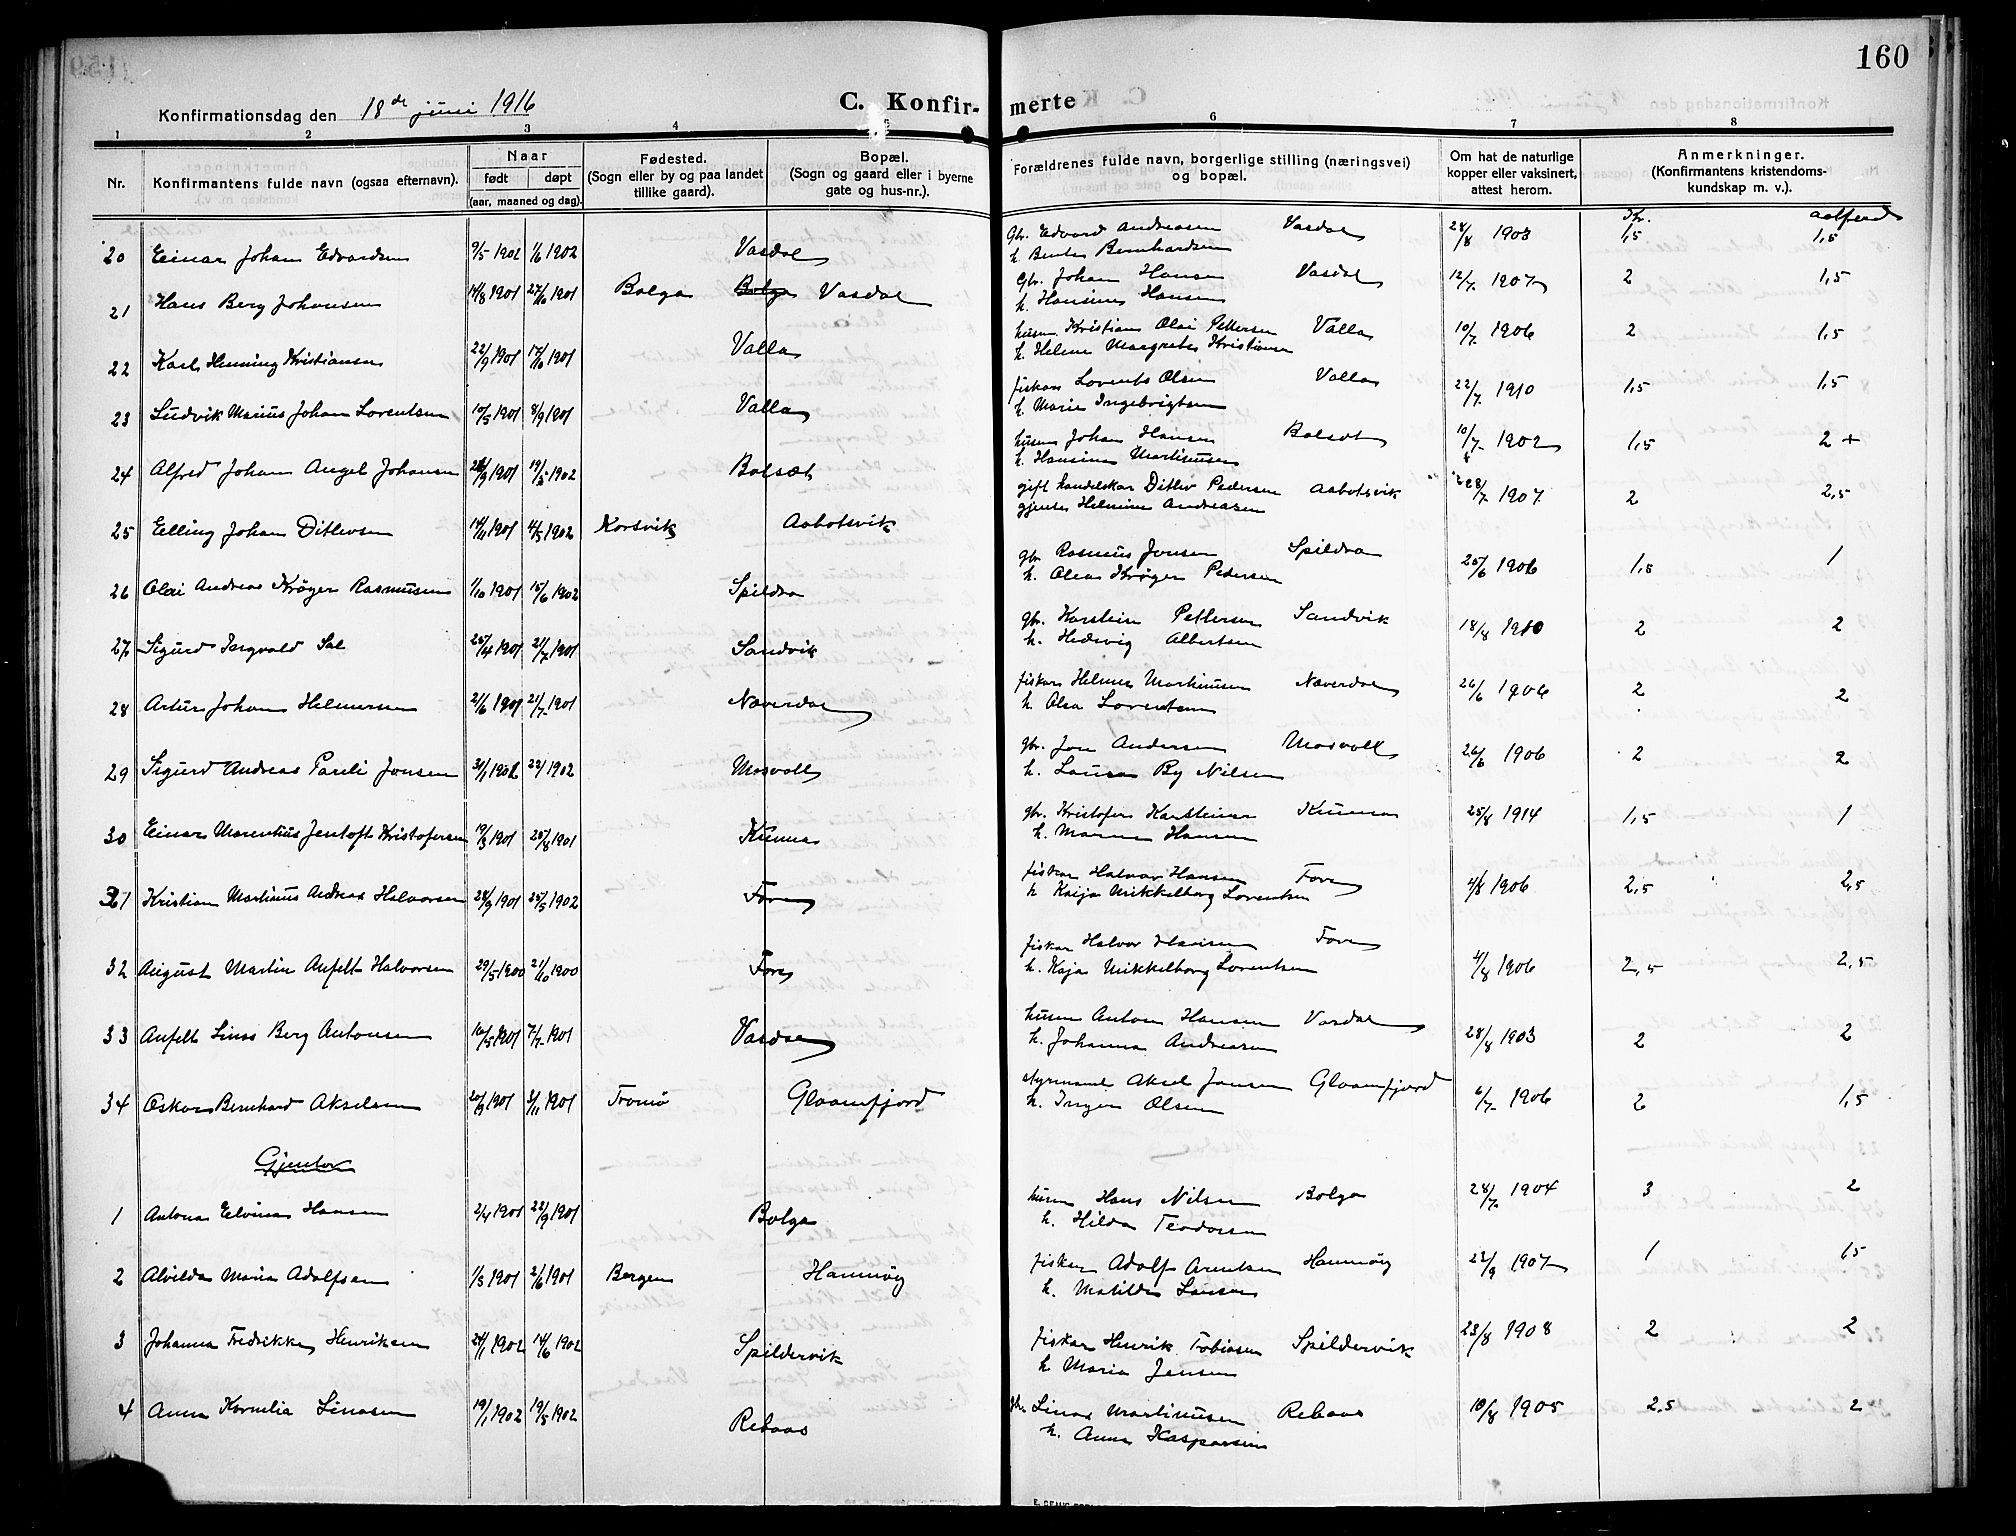 160
Konfirmationsdag den 18de juni 1916
C. Konfir-merte
1 2 3 4 5 6 7 8
Nr. Konfirmantens fulde navn (ogsaa efternavn). Naar født døpt (aar, maaned og dag). Fødested. (Sogn eller by og paa landet tillike gaard). Bopæl. (Sogn og gaard eller i byerne gate og hus-nr.). Forældrenes fulde navn, borgerlige stilling (næringsvei) og bopæl. Om hat de naturlige kopper eller vaksinert, attest herom. Anmerkninger. (Konfirmantens kristendoms-kundskap m. v.).
20 Einar Johan Edvardsen 9/5 1902 1/6 1902 Vasdal gbr. Edvard Andreasen Vasdal 28/8 1903 1,5 1,5
h. Bentes Bernhardsen
21 Hans Berg Johansen 14/8 1901 27/10 1901 Bolga Bolga Vasdal gbr. Johan Hansen Vasdal 12/7 1907 2 1,5
h. Hansine Hansen
22 Karl Henning Kristiansen 22/9 1901 17/10 1901 Valla husm. Kristian Olai Pettersen Valla 10/7 1906 2 1,5
h. Helene Margrete Kristiansen
23 Ludvik Marius Johan Lorentsen 10/5 1901 8/9 1901 Valla fisker Lorents Olsen Valla 22/7 1910 1,5 1,5
h. Marie Ingebrigtsen
24 Alfred Johan Angel Johansen 1901 19/5 1902 Bolsæt husm Johan Hansen Bolsæt 10/7 1902 1,5 2 +
h. Hansine Martinusen
25 Elling Johan Ditlevsen 14/11 1901 4/5 1902 Korsvik Aabotsvik gift handelskar Ditlev Pedersen Aabotsvik 28/7 1907 2 2,5
gjente Helmine Andreasen
26 Olai Andreas Krøger Rasmusen 1/10 1901 15/6 1902 Spildra gbr Rasmus Jonsen Spildra 25/6 1906 1,5 1
h. Olea Krøger Pedersen
27 Sigurd Ingvald Sal 25/4 1901 21/7 1901 Sandvik gbr. Karstein Pettersen Sandvik 18/8 1910 2 2
h. Hedevig Albertsen
28 Artur Johan Helmersen 2/6 1901 21/7 1901 Næverdal fisker Helmer Martinusen Næverdal 26/6 1906 2 2
h. Olea Lorentsen
29 Sigurd Andreas Pareli Jonsen 31/1 1902 22/ 1902 Mosvoll gbr. Jon Andersen Mosvoll 26/6 1906 2 2
h. Laura By Nilsen
30 Einar Marentius Jentoft Kristofersen 19/3 1901 25/8 1901 Kunna gbr. Kristofer Karsteinsen Kunna 25/8 1914 1,5 1
h. Hansen
31 Kristian Martinus Andreas Halvorsen 28/9 1901 25/5 1902 Fore fisker Halvor Hansen Fore 4/8 1906 2,5 2,5
h Kaija Mikkelborg Lorentsen
32 August Martin Anfelt Halvorsen 29/5 1900 21/10 1900 Fore fisker Halvor Hansen Fore 4/8 1906 2,5 2,5
h. Kaja Mikkelborg Lorentsen
33 Anfelt Linus Berg Antonsen 16/5 1901 7/7 1901 Vasdal husm Anton Hansen Vasdal 28/8 1903 2 2
h. Johanna Andreasen
34 Oskar Bernhard Akselsen 20/9 1901 3/11 1901 Tromsø Glaamfjord styrmand Aksel Jansen Glaamfjord 6/7 1906 2 1,5
h. Inger Olsen
Gjentor
1 Antona Elvina Hansen 2/4 1901 22/9 1901 Bolga husm Hans Nilsen Bolga 28/7 1904 3 2
h. Hilda Teodorsen
2 Alvilda Maria Adolfsen 1/3 1901 2/6 1901 Bergen Hamnøig fisker Adolf Arntsen Hamnøig 22/9 1907 1 15
h. Matilde Larsen
3 Johanna Fredrikke Henriksen 24/1 1902 14/6 1902 Spildervik fisker Henrik Tobiasen Spildervik 23/8 1908 2 2
h Maria Jensen
4 Anna Kornelia Linasen 19/1 1902 19/5 1902 Rebaas gbr Linas Martinusen Rebaas 10/8 1905 2,5 2
h. Anna Kasparsen